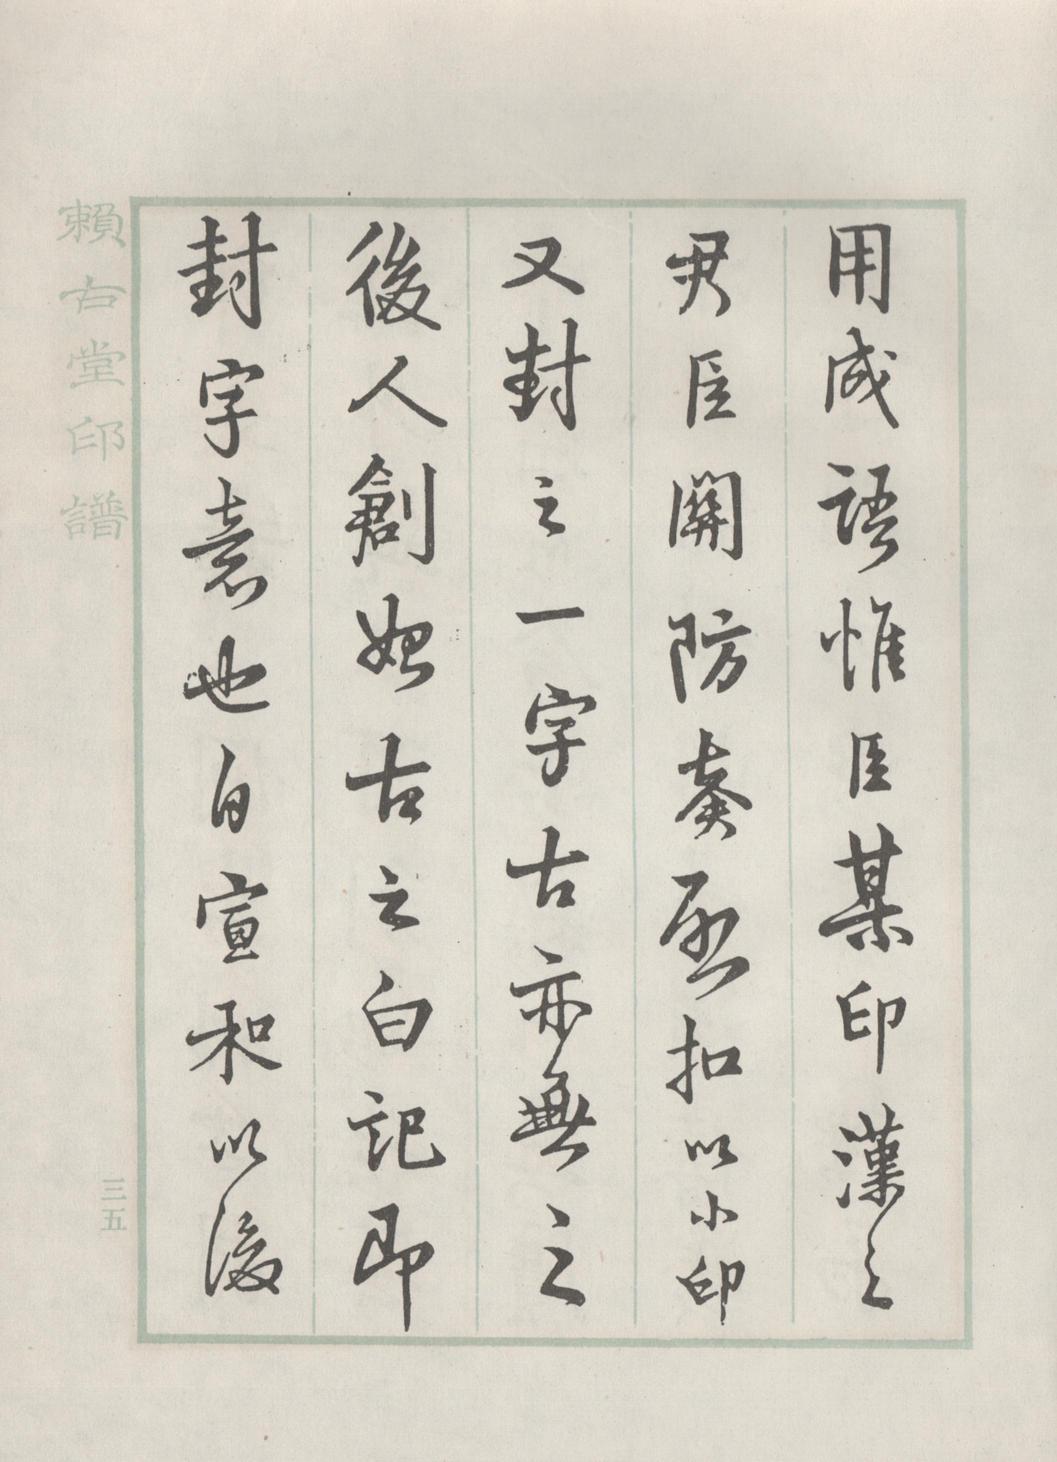 用成語惟臣某印漢之
君臣關防奏函扣以小印
又封之一字古亦無之
後人創始古之白記即
封字意也自宣和以後
賴古堂印譜
三五